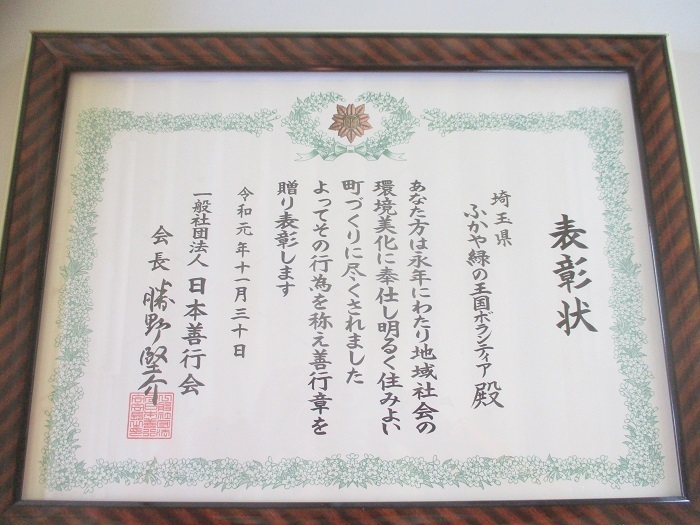 表彰状
埼玉県
ふかや緑の王国ボランティア 殿
あなた方は永年にわたり地域社会の
環境美化に奉仕し明るく住みよい
町づくりに尽くされました
よってその行為を称え善行章を
贈り表彰します
令和元年十一月三十日
一般社団法人 日本善行会
会長 勝野堅介